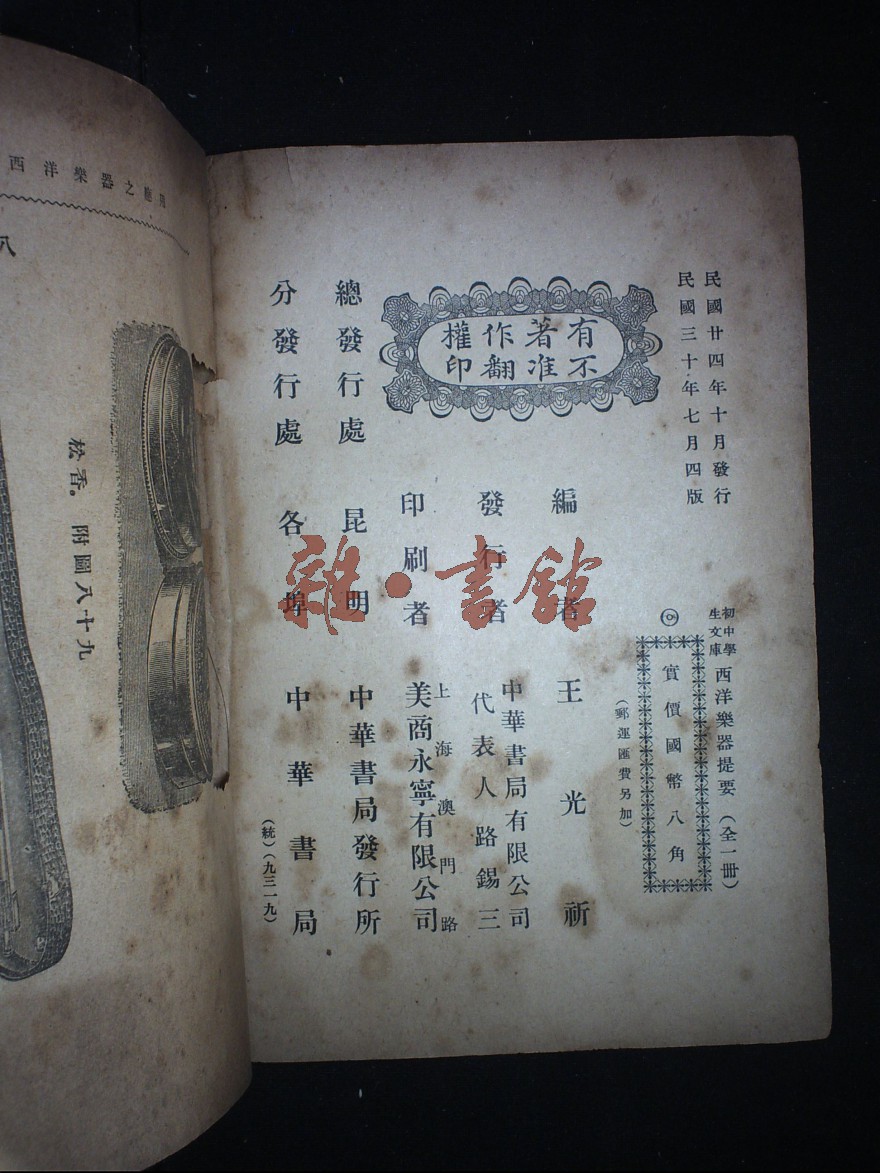 民國廿四年十月發行
民國三十年七月四版
初中學生文庫
西洋樂器提要(全一冊)
◎實價國幣八角
(郵運匯費另加)
有著作權
不准翻印
編者 王光祈
發行者 中華書局有限公司
代表人路錫三
印刷者 上海澳門路
美商永寧有限公司
總發行處 昆明 中華書局發行所
分發行處 各埠 中華書局
(統)(九三一九)
雜·書館
西洋樂器之應用
八
松香。附圖八十九